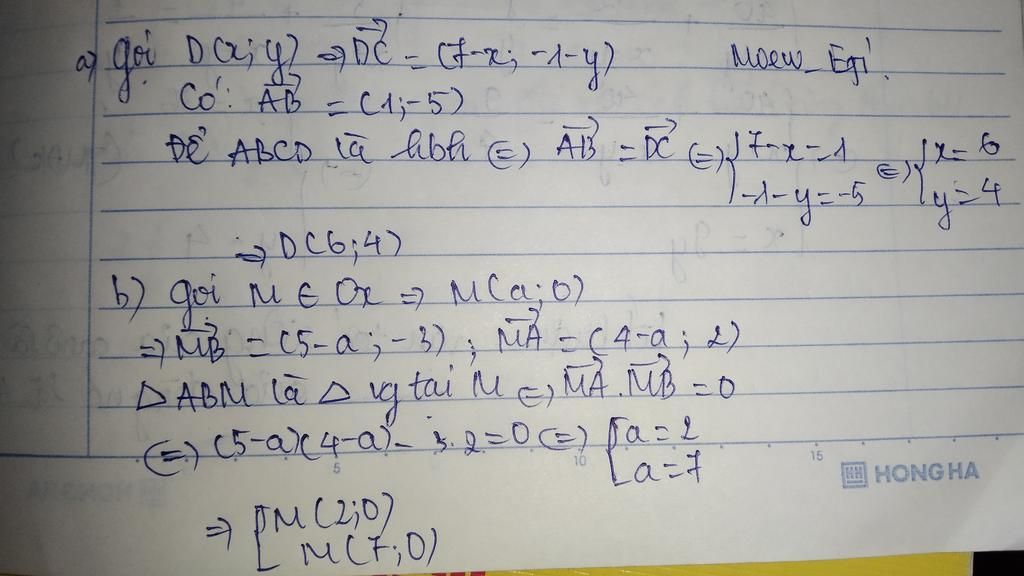 a) gọi D(x;y) ⇒ \overrightarrow{DC} = (7-x; -1-y) Moew_Egi.
Có: \overrightarrow{AB} = (1;-5)
Để ABCD là hbh ⇔ \overrightarrow{AB} = \overrightarrow{DC} ⇔ { 7-x=1 ⇔ { x=6
-1-y=-5 y=4
⇒ D(6;4)
b) gọi M ∈ Ox ⇒ M(a;0)
⇒ \overrightarrow{MB} = (5-a; -3); \overrightarrow{MA} = (4-a; 2)
△ABM là △ vg tại M ⇔ \overrightarrow{MA}.\overrightarrow{MB} = 0
⇔ (5-a)(4-a) - 3.2=0 ⇔ [ a=2
a=7
5 10 15 HONG HA
⇒ [ M(2;0)
M(7;0)